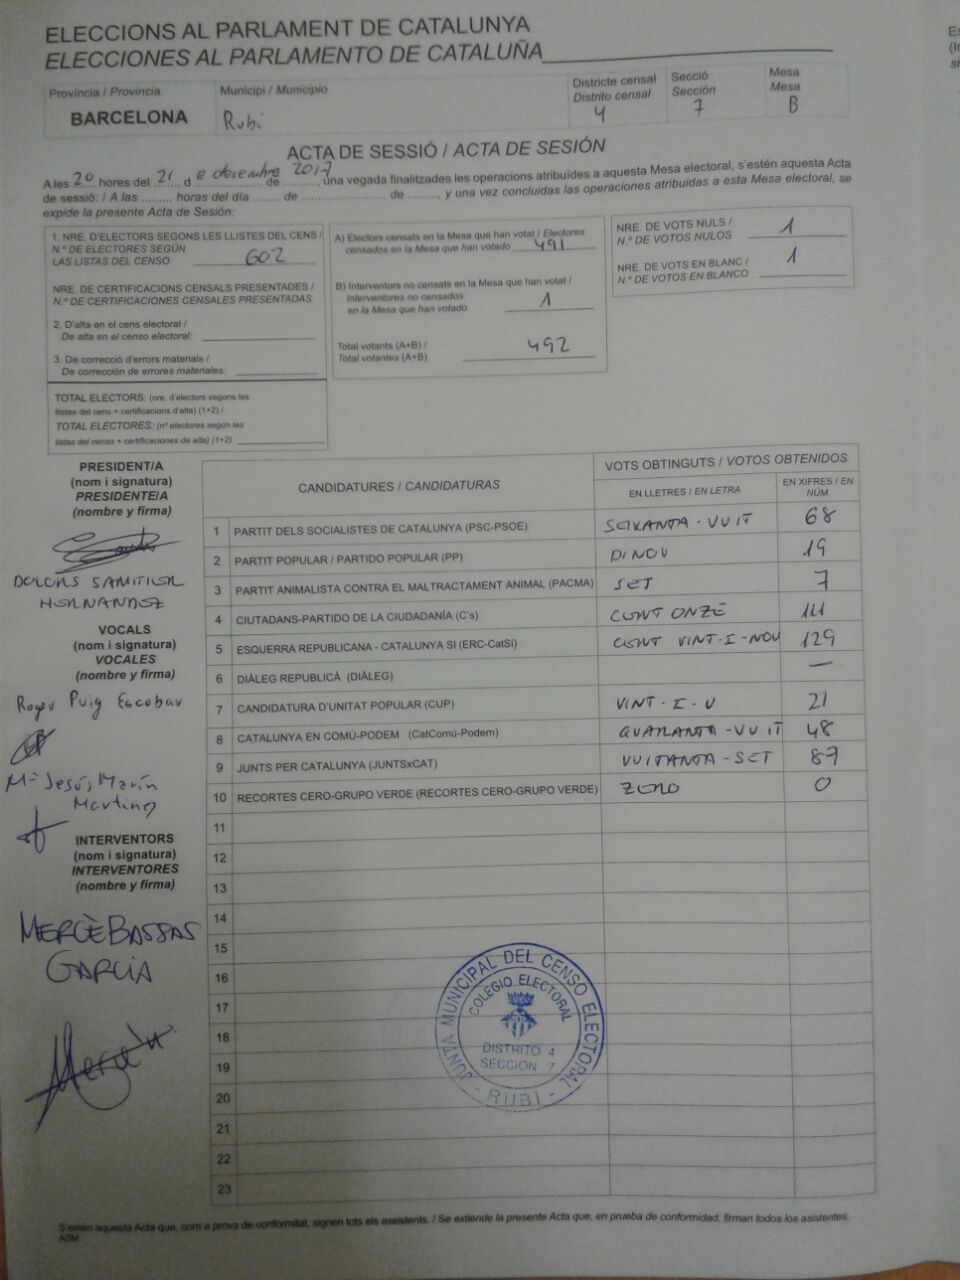 ELECCIONS AL PARLAMENT DE CATALUNYA
ELECCIONES AL PARLAMENTO DE CATALUÑA
Província / Provincia
BARCELONA
Municipi / Municipio
Rubí
Districte censal
Distrito censal
4
Secció
Sección
7
Mesa
Mesa
B
ACTA DE SESSIÓ / ACTA DE SESIÓN
A les 20 hores del 21 d e desembre de 2017, una vegada finalitzades les operacions atribuïdes a aquesta Mesa electoral, s'estén aquesta Acta
de sessió: / A las ......... horas del día ....... de ............................ de ........, y una vez concluidas las operaciones atribuidas a esta Mesa electoral, se
expide la presente Acta de Sesión:
1. NRE. D'ELECTORS SEGONS LES LLISTES DEL CENS /
N.º DE ELECTORES SEGÚN
LAS LISTAS DEL CENSO 602
NRE. DE CERTIFICACIONS CENSALS PRESENTADES /
N.º DE CERTIFICACIONES CENSALES PRESENTADAS
2. D'alta en el cens electoral /
De alta en el censo electoral:
3. De correcció d'errors materials /
De corrección de errores materiales:
TOTAL ELECTORS: (nre. d'electors segons les
llistes del cens + certificacions d'alta) (1+2) /
TOTAL ELECTORES: (nº electores según las
listas del censo + certificaciones de alta) (1+2)
A) Electors censats en la Mesa que han votat / Electores
censados en la Mesa que han votado 491
B) Interventors no censats en la Mesa que han votat /
Interventores no censados
en la Mesa que han votado 1
Total votants (A+B) /
Total votantes (A+B) 492
NRE. DE VOTS NULS /
N.º DE VOTOS NULOS 1
NRE. DE VOTS EN BLANC /
N.º DE VOTOS EN BLANCO 1
PRESIDENT/A
(nom i signatura)
PRESIDENTE/A
(nombre y firma)
DOLORS SAMITIER
HERNANDEZ
VOCALS
(nom i signatura)
VOCALES
(nombre y firma)
Roger Puig Escobar
Mª Jesús Marín
Martínez
INTERVENTORS
(nom i signatura)
INTERVENTORES
(nombre y firma)
MERCÈ BASSAS
GARCIA
Mercè
CANDIDATURES / CANDIDATURAS
VOTS OBTINGUTS / VOTOS OBTENIDOS
EN LLETRES / EN LETRA
EN XIFRES / EN NÚM.
1 PARTIT DELS SOCIALISTES DE CATALUNYA (PSC-PSOE) SEIXANTA-VUIT 68
2 PARTIT POPULAR / PARTIDO POPULAR (PP) DINOU 19
3 PARTIT ANIMALISTA CONTRA EL MALTRACTAMENT ANIMAL (PACMA) SET 7
4 CIUTADANS-PARTIDO DE LA CIUDADANÍA (C's) CENT ONZE 111
5 ESQUERRA REPUBLICANA - CATALUNYA SI (ERC-CatSí) CENT VINT-I-NOU 129
6 DIÀLEG REPUBLICÀ (DIÀLEG) —
7 CANDIDATURA D'UNITAT POPULAR (CUP) VINT-I-U 21
8 CATALUNYA EN COMÚ-PODEM (CatComú-Podem) QUARANTA-VUIT 48
9 JUNTS PER CATALUNYA (JUNTSxCAT) VUITANTA-SET 87
10 RECORTES CERO-GRUPO VERDE (RECORTES CERO-GRUPO VERDE) ZERO 0
11
12
13
14
15
16
17
18
19
20
21
22
23
JUNTA MUNICIPAL DEL CENSO ELECTORAL
COLEGIO ELECTORAL
DISTRITO 4
SECCION 7
- RUBI -
S'estén aquesta Acta que, com a prova de conformitat, signen tots els assistents. / Se extiende la presente Acta que, en prueba de conformidad, firman todos los asistentes.